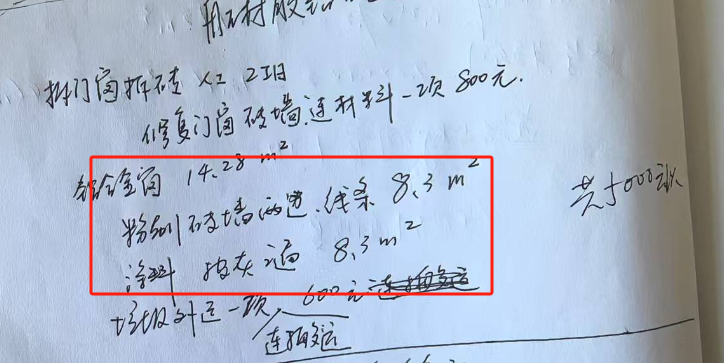 用石材胶
拆门窗拆砖 人工 2工日
修复门窗破墙.连材料一项 800元.
铝合金窗 14.28 m²
粉刷破墙两边.线条 8.3 m²
涂料 披灰 遍 8.3 m²
共5000元
垃圾外运一项 600元
连搬运